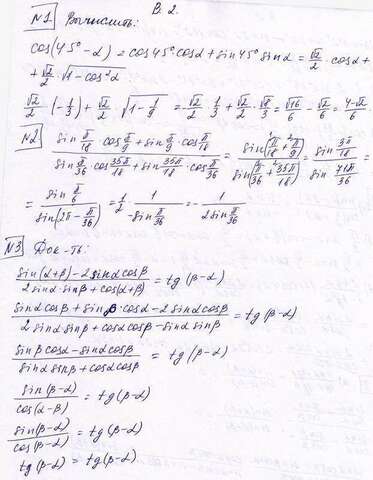 В. 2.
№1 Вычислить:
cos(45°-α) = cos45°cosα + sin45° sinα = √2/2 · cosα +
+ √2/2 · √(1-cos²α)
√2/2 · (-1/3) + √2/2 · √(1-1/9) = -√2/2 · 1/3 + √2/2 · √8/3 = √16/6 - √2/6 = (4-√2)/6
№2 (sin π/18 · cos π/9 + sin π/9 · cos π/18)/(sin π/36 · cos 35π/18 + sin 35π/18 · cos π/36) = sin(π/18 + π/9)/sin(π/36 + 35π/18) = sin 3π/18 / sin 71π/36 =
= sin π/6 / sin(2π - π/36) = 1/2 · 1/(-sin π/36) = - 1/(2sin π/36)
№3 Док-ть:
(sin(α+β) - 2sinαcosβ)/(2sinα sinβ + cos(α+β)) = tg(β-α)
(sinαcosβ + sinβ·cosα - 2sinαcosβ)/(2sinα sinβ + cosαcosβ - sinα sinβ) = tg(β-α)
(sinβcosα - sinαcosβ)/(sinα sinβ + cosαcosβ) = tg(β-α)
sin(β-α)/cos(α-β) = tg(β-α)
sin(β-α)/cos(β-α) = tg(β-α)
tg(β-α) = tg(β-α)